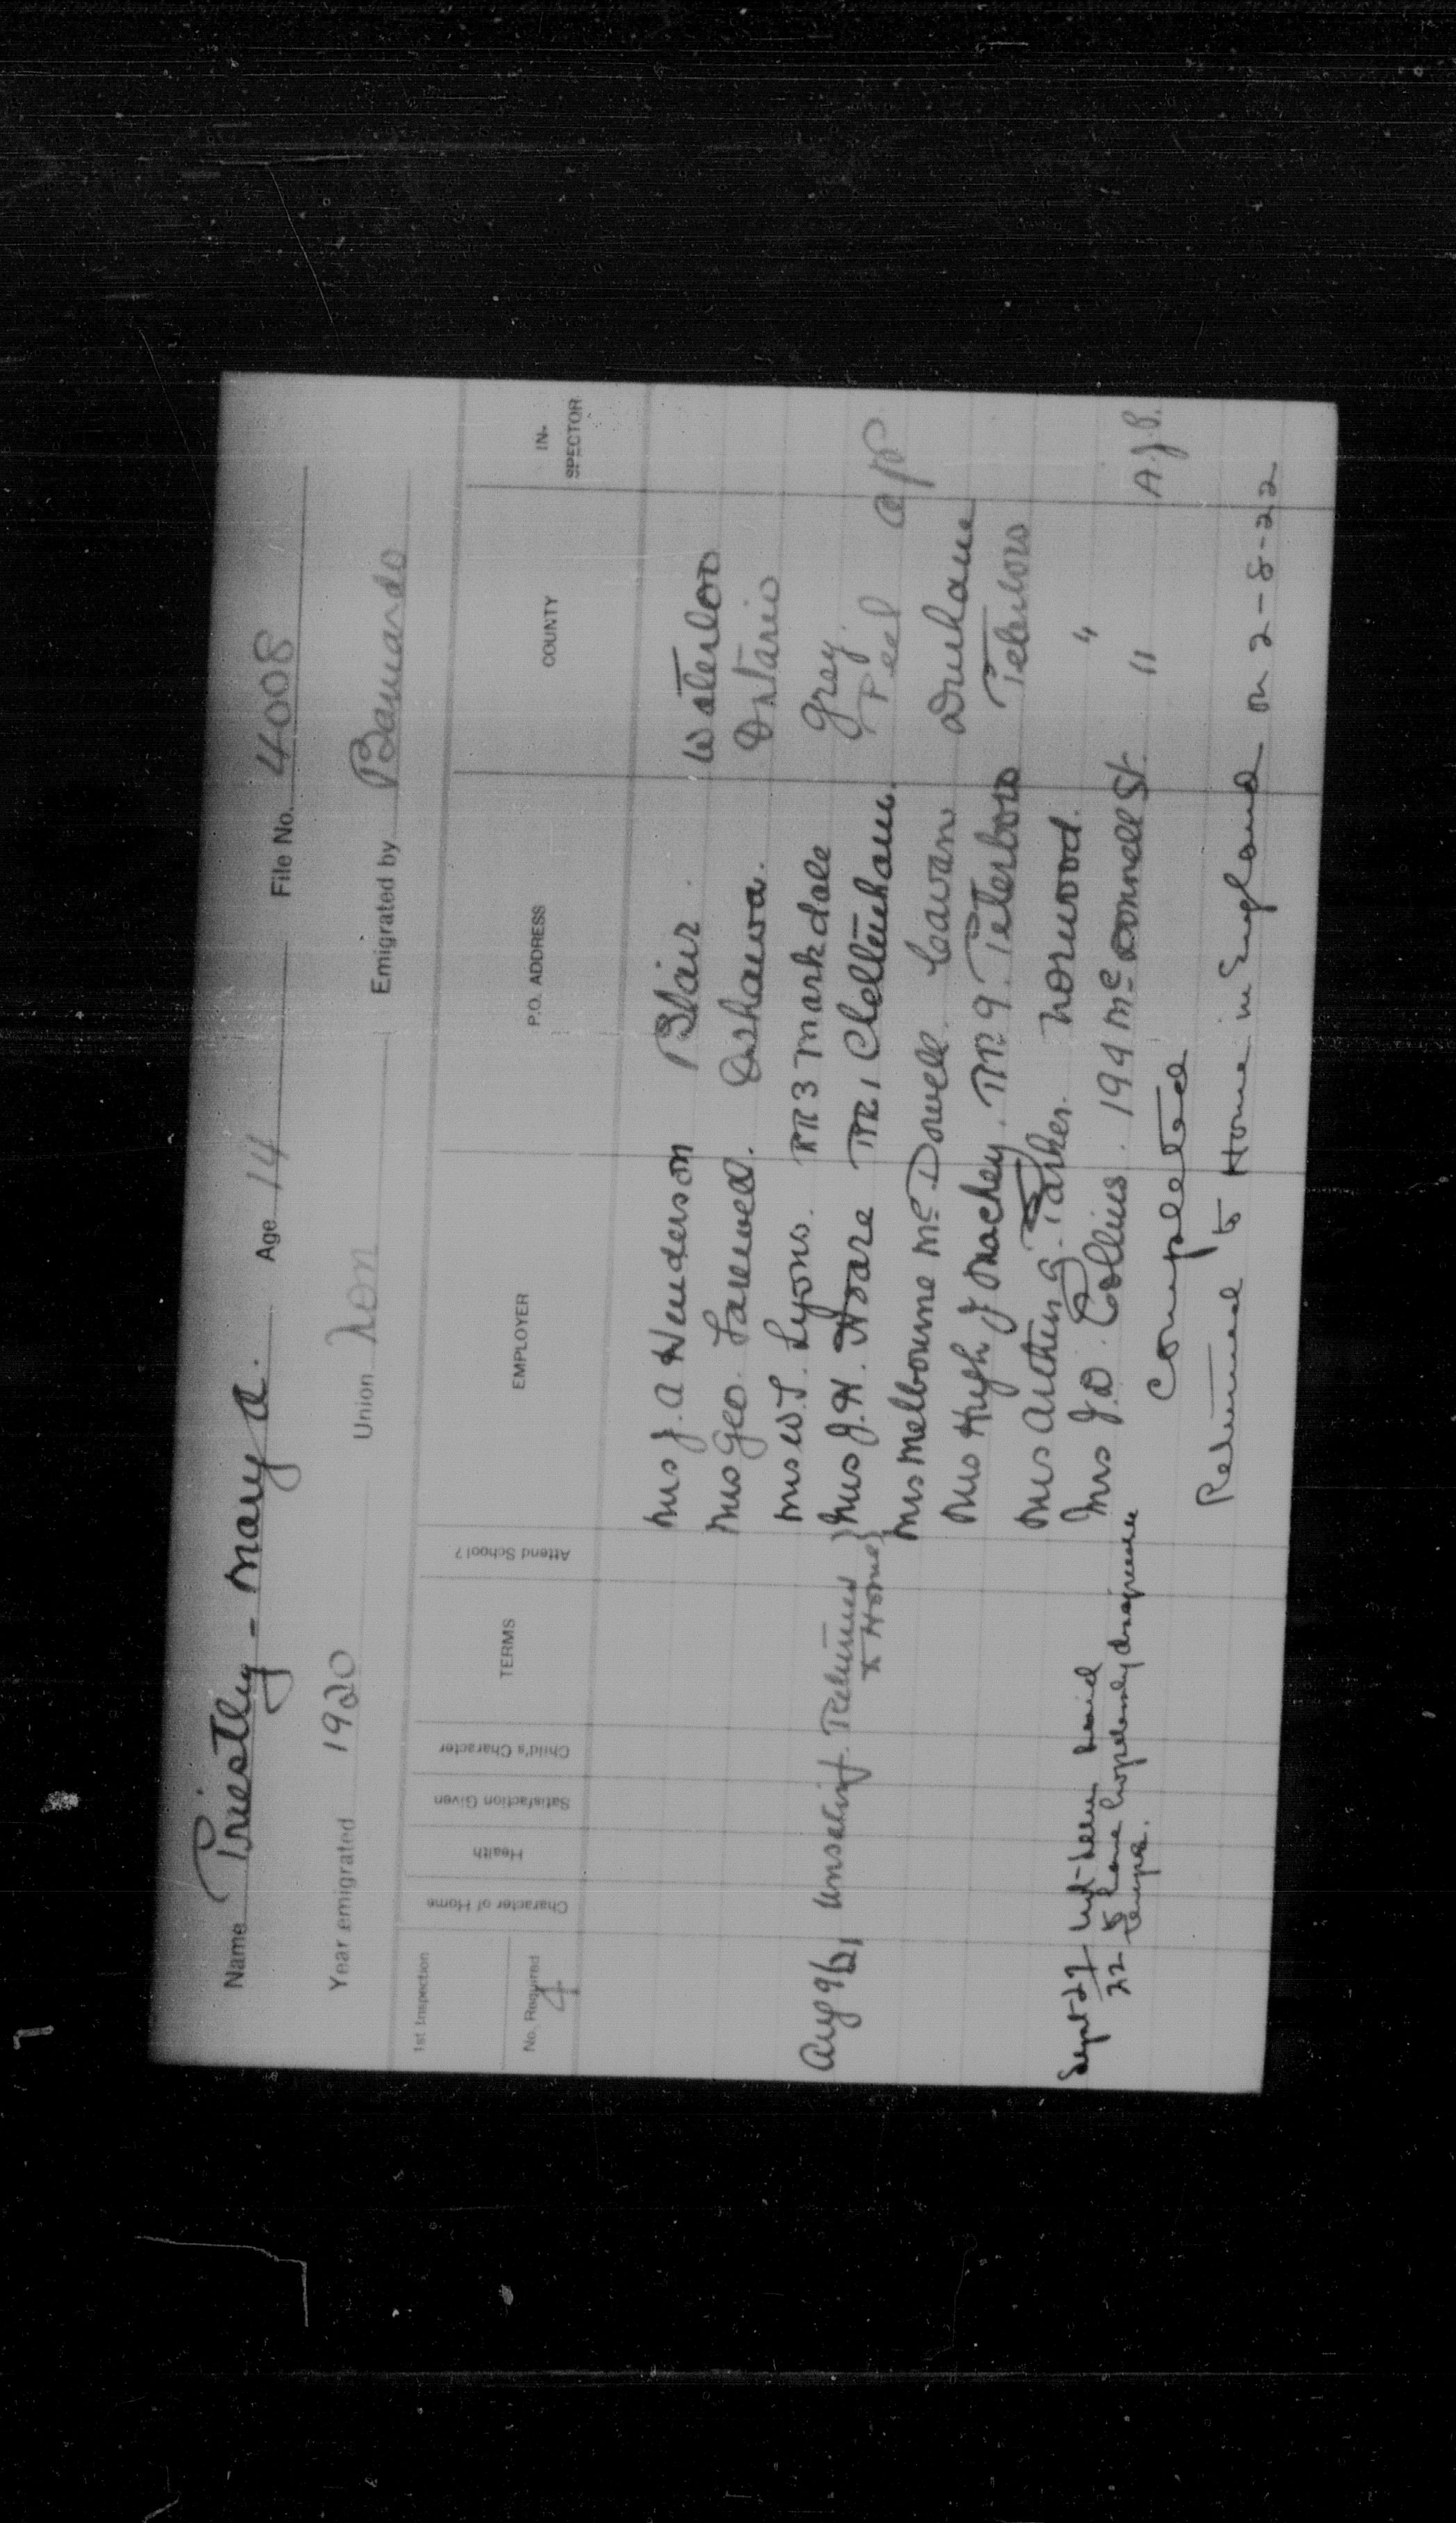 Name Priestley - Mary A. Age 14 File No. 4008
Year emigrated 1920 Union Non Emigrated by Barnardo
1st Inspection
No. Required
4
Character of Home
Health
Satisfaction Given
Child's Character
TERMS
Attend School?
EMPLOYER
P.O. ADDRESS
COUNTY
IN-
SPECTOR
Mrs J. A Henderson Blair Waterloo
Mrs Geo. Farewell. Oshawa. Ontario
Mrs W. T. Lyons. RR 3 Markdale Grey.
Aug 9/21 Unsatisf. Returned to Home Mrs J. H. Hoare RR 1 Cheltenham. Peel
Mrs Melbourne McDowell. Cavan Durham
Mrs Hugh J Mackey. RR 9. Peterboro Peterboro
Mrs Arthur G. Parker. Norwood. "
Sept-27 22- to have hopelessly disagreeable temper. Mrs J. D. Collins. 194 McDonnell St. " A.J.P.
Completed
Returned to Home in England on 2-8-22